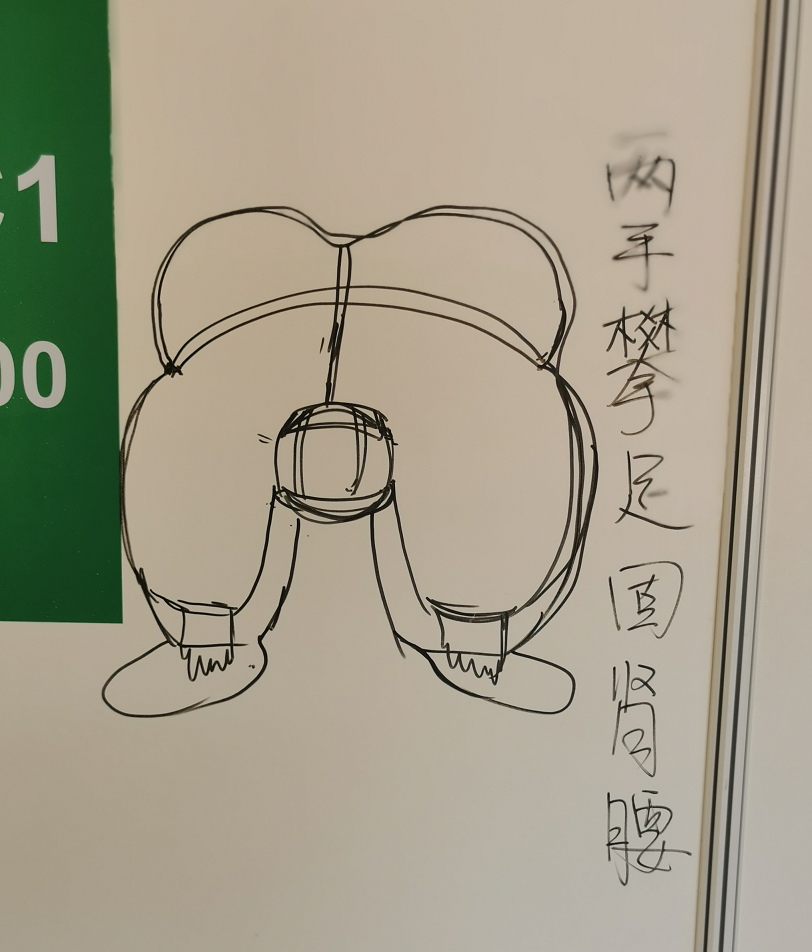 C1
00
两手攀足固肾腰